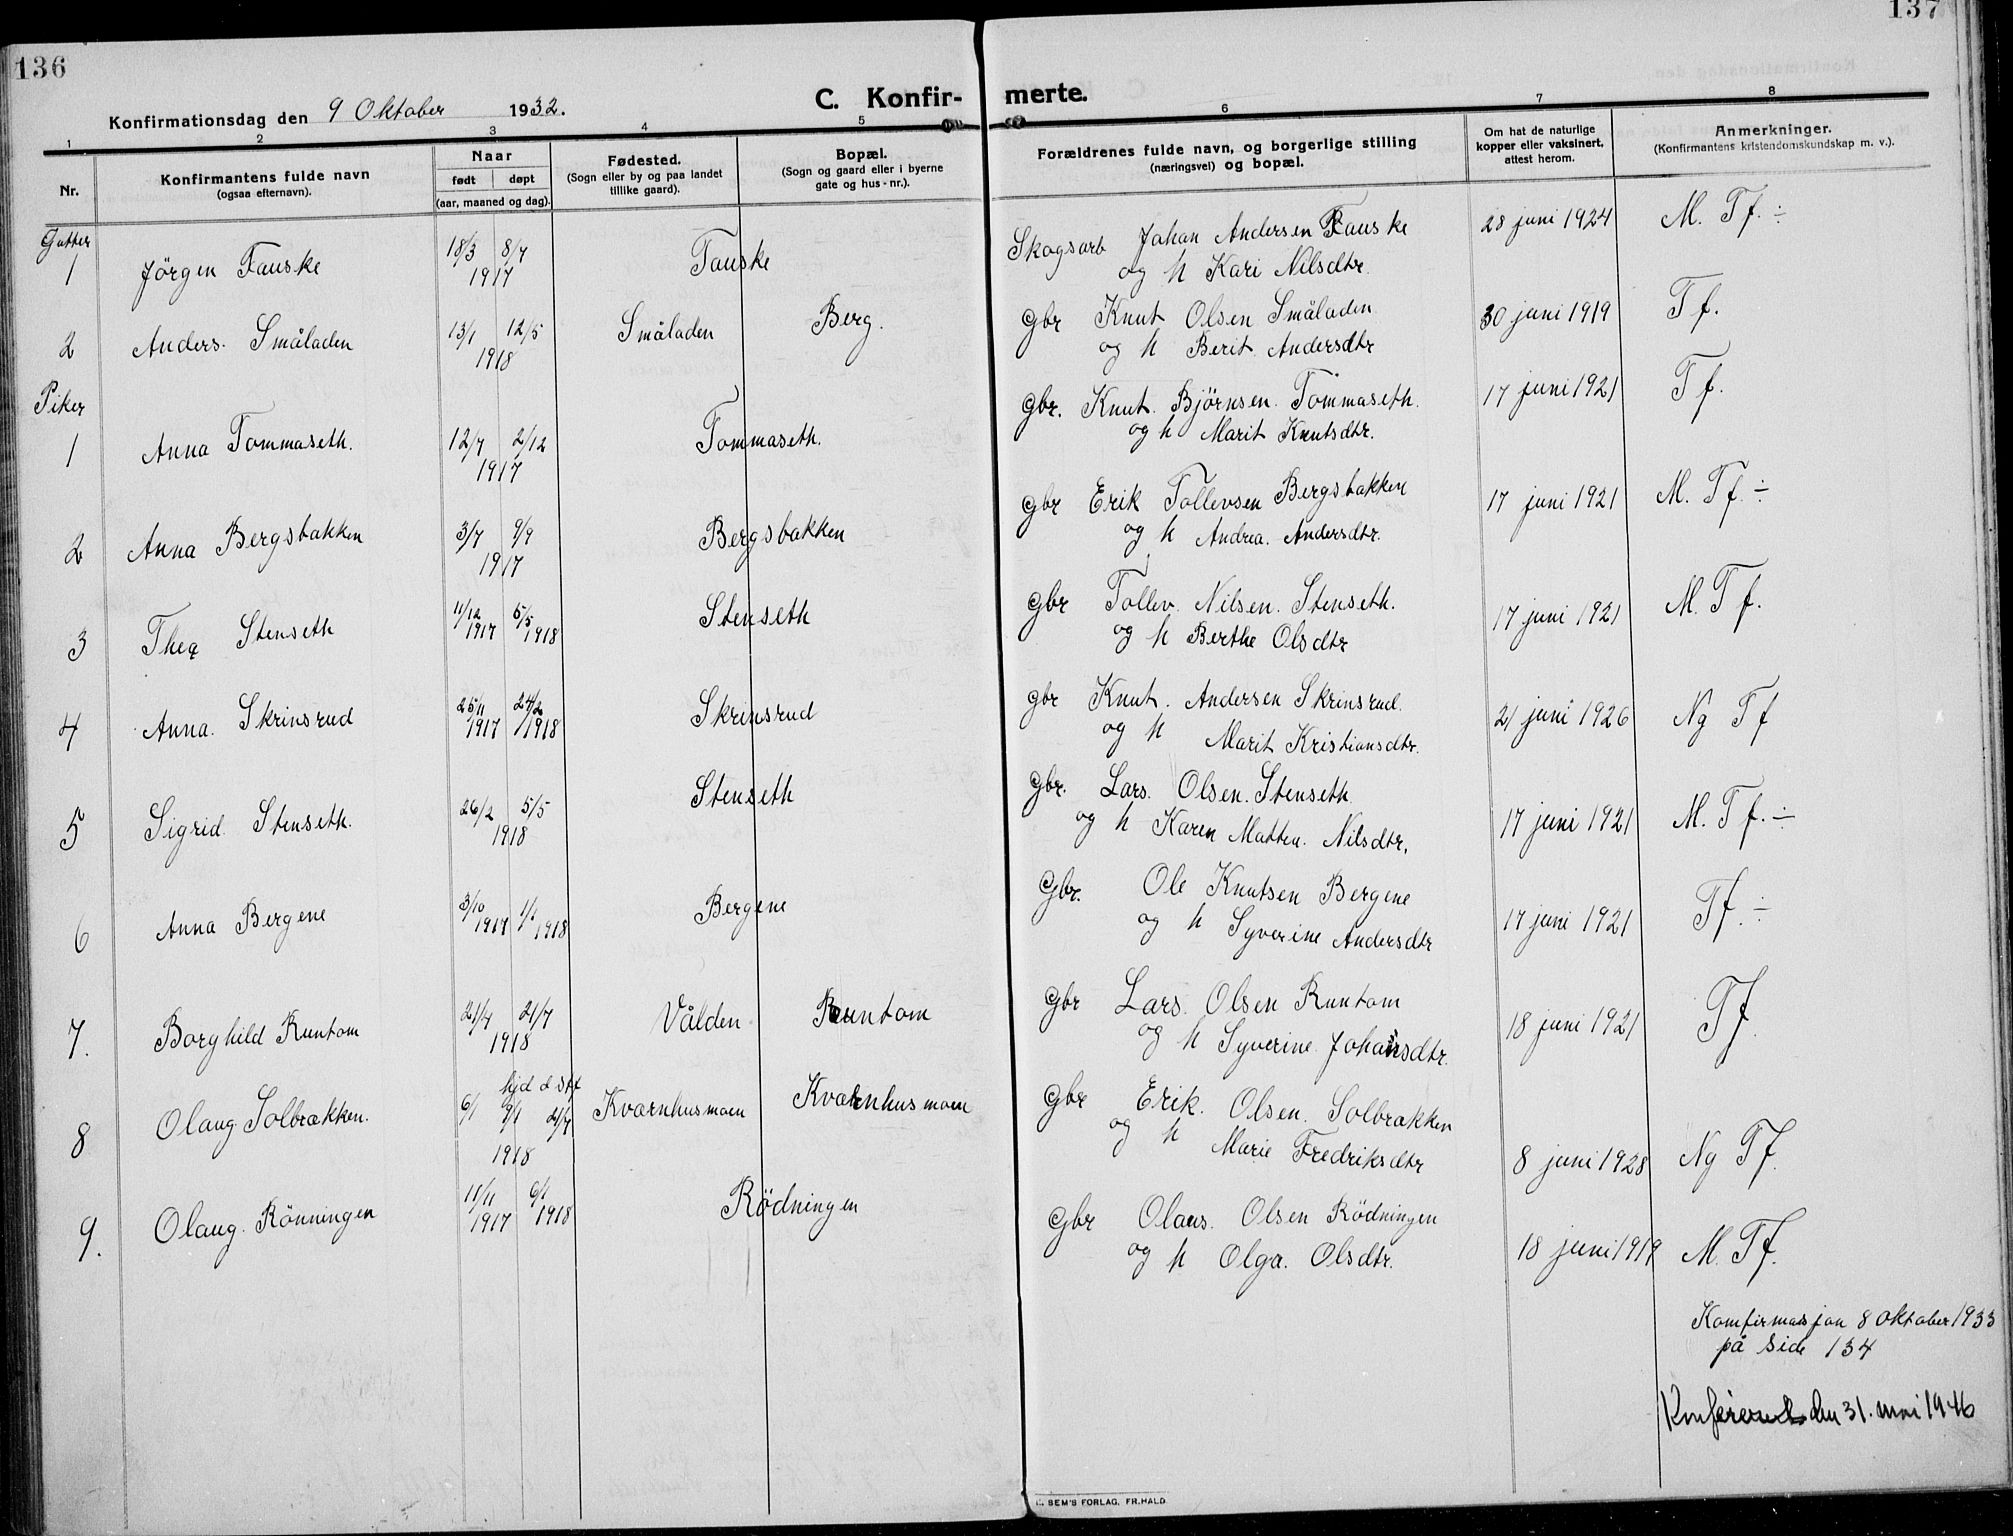 136
137
C. Konfir- merte.
Konfirmationsdag den 9 Oktober 1932.
1 2 3 4 5 6 7 8
Nr.
Konfirmantens fulde navn
(ogsaa efternavn).
Naar
født døpt
(aar, maaned og dag).
Fødested.
(Sogn eller by og paa landet
tillike gaard).
Bopæl.
(Sogn og gaard eller i byerne
gate og hus-nr.).
Forældrenes fulde navn, og borgerlige stilling
(næringsvei) og bopæl.
Om hat de naturlige
kopper eller vaksinert,
attest herom.
Anmerkninger.
(Konfirmantens kristendomskundskap m. v.).
Gutter
1 Jörgen Fauske 18/3 8/7 Fauske Skogsarb Johan Andersen Fauske 28 juni 1924 M. Tf. ÷
1917 og h Kari Nilsdtr.
2 Anders. Småladen 13/1 12/5 Småladen Berg. Gbr Knut Olsen Småladen 30 juni 1919 Tf.
1918 og h Berit Andersdtr
Piker
1 Anna Tommaseth. 12/7 2/12 Tommaseth. Gbr. Knut. Bjørnsen. Tommaseth. 17 juni 1921 Tf.
1917 og h Marit Knutsdtr.
2 Anna Bergsbakken 3/7 9/9 Bergsbakken Gbr Erik Tollevsen Bergsbakken 17 juni 1921 M. Tf. ÷
1917 og h Andrea. Andersdtr.
3 Thea Stenseth 11/12 5/5 Stenseth Gbr Tollev. Nilsen. Stenseth. 17 juni 1921 M. Tf.
1917 1918 og h Berthe Olsdtr
4 Anna. Skrinsrud 25/11 24/2 Skrinsrud Gbr Knut. Andersen Skrinsrud. 21 juni 1926 Ng Tf
1917 1918 og h Marit Kristiansdtr.
5 Sigrid. Stenseth. 26/2 5/5 Stenseth Gbr. Lars. Olsen. Stenseth 17 juni 1921 M. Tf. ÷
1918 og h Karen Matten. Nilsdtr.
6 Anna Bergene 3/10 1/1 Bergene Gbr. Ole Knutsen Bergene 17 juni 1921 Tf. ÷
1917 1918 og h Syverine Andersdtr
7. Borghild Runtom 21/4 21/7 Vålden Runtom Gbr Lars. Olsen Runtom 18 juni 1921 Tf.
1918 og h Syverine. Johansdtr.
hjd d. stf
8 Olaug. Solbrækken. 6/1 9/1 21/7 Kvarnhusmoen Kvarnhusmoen Gbr Erik. Olsen. Solbrækken 8 juni 1928 Ng Tf.
1918 og h Marie Fredriksdtr
9. Olaug. Rönningen 11/11 6/1 Rödningen Gbr Olaus. Olsen Rödningen 18 juni 1919 M. Tf.
1917 1918 og h Olga. Olsdtr.
Konfirmasjon 8 oktober 1933
på side 134
Konfereret den 31. mai 1946
SEM'S FORLAG, FR.HALD